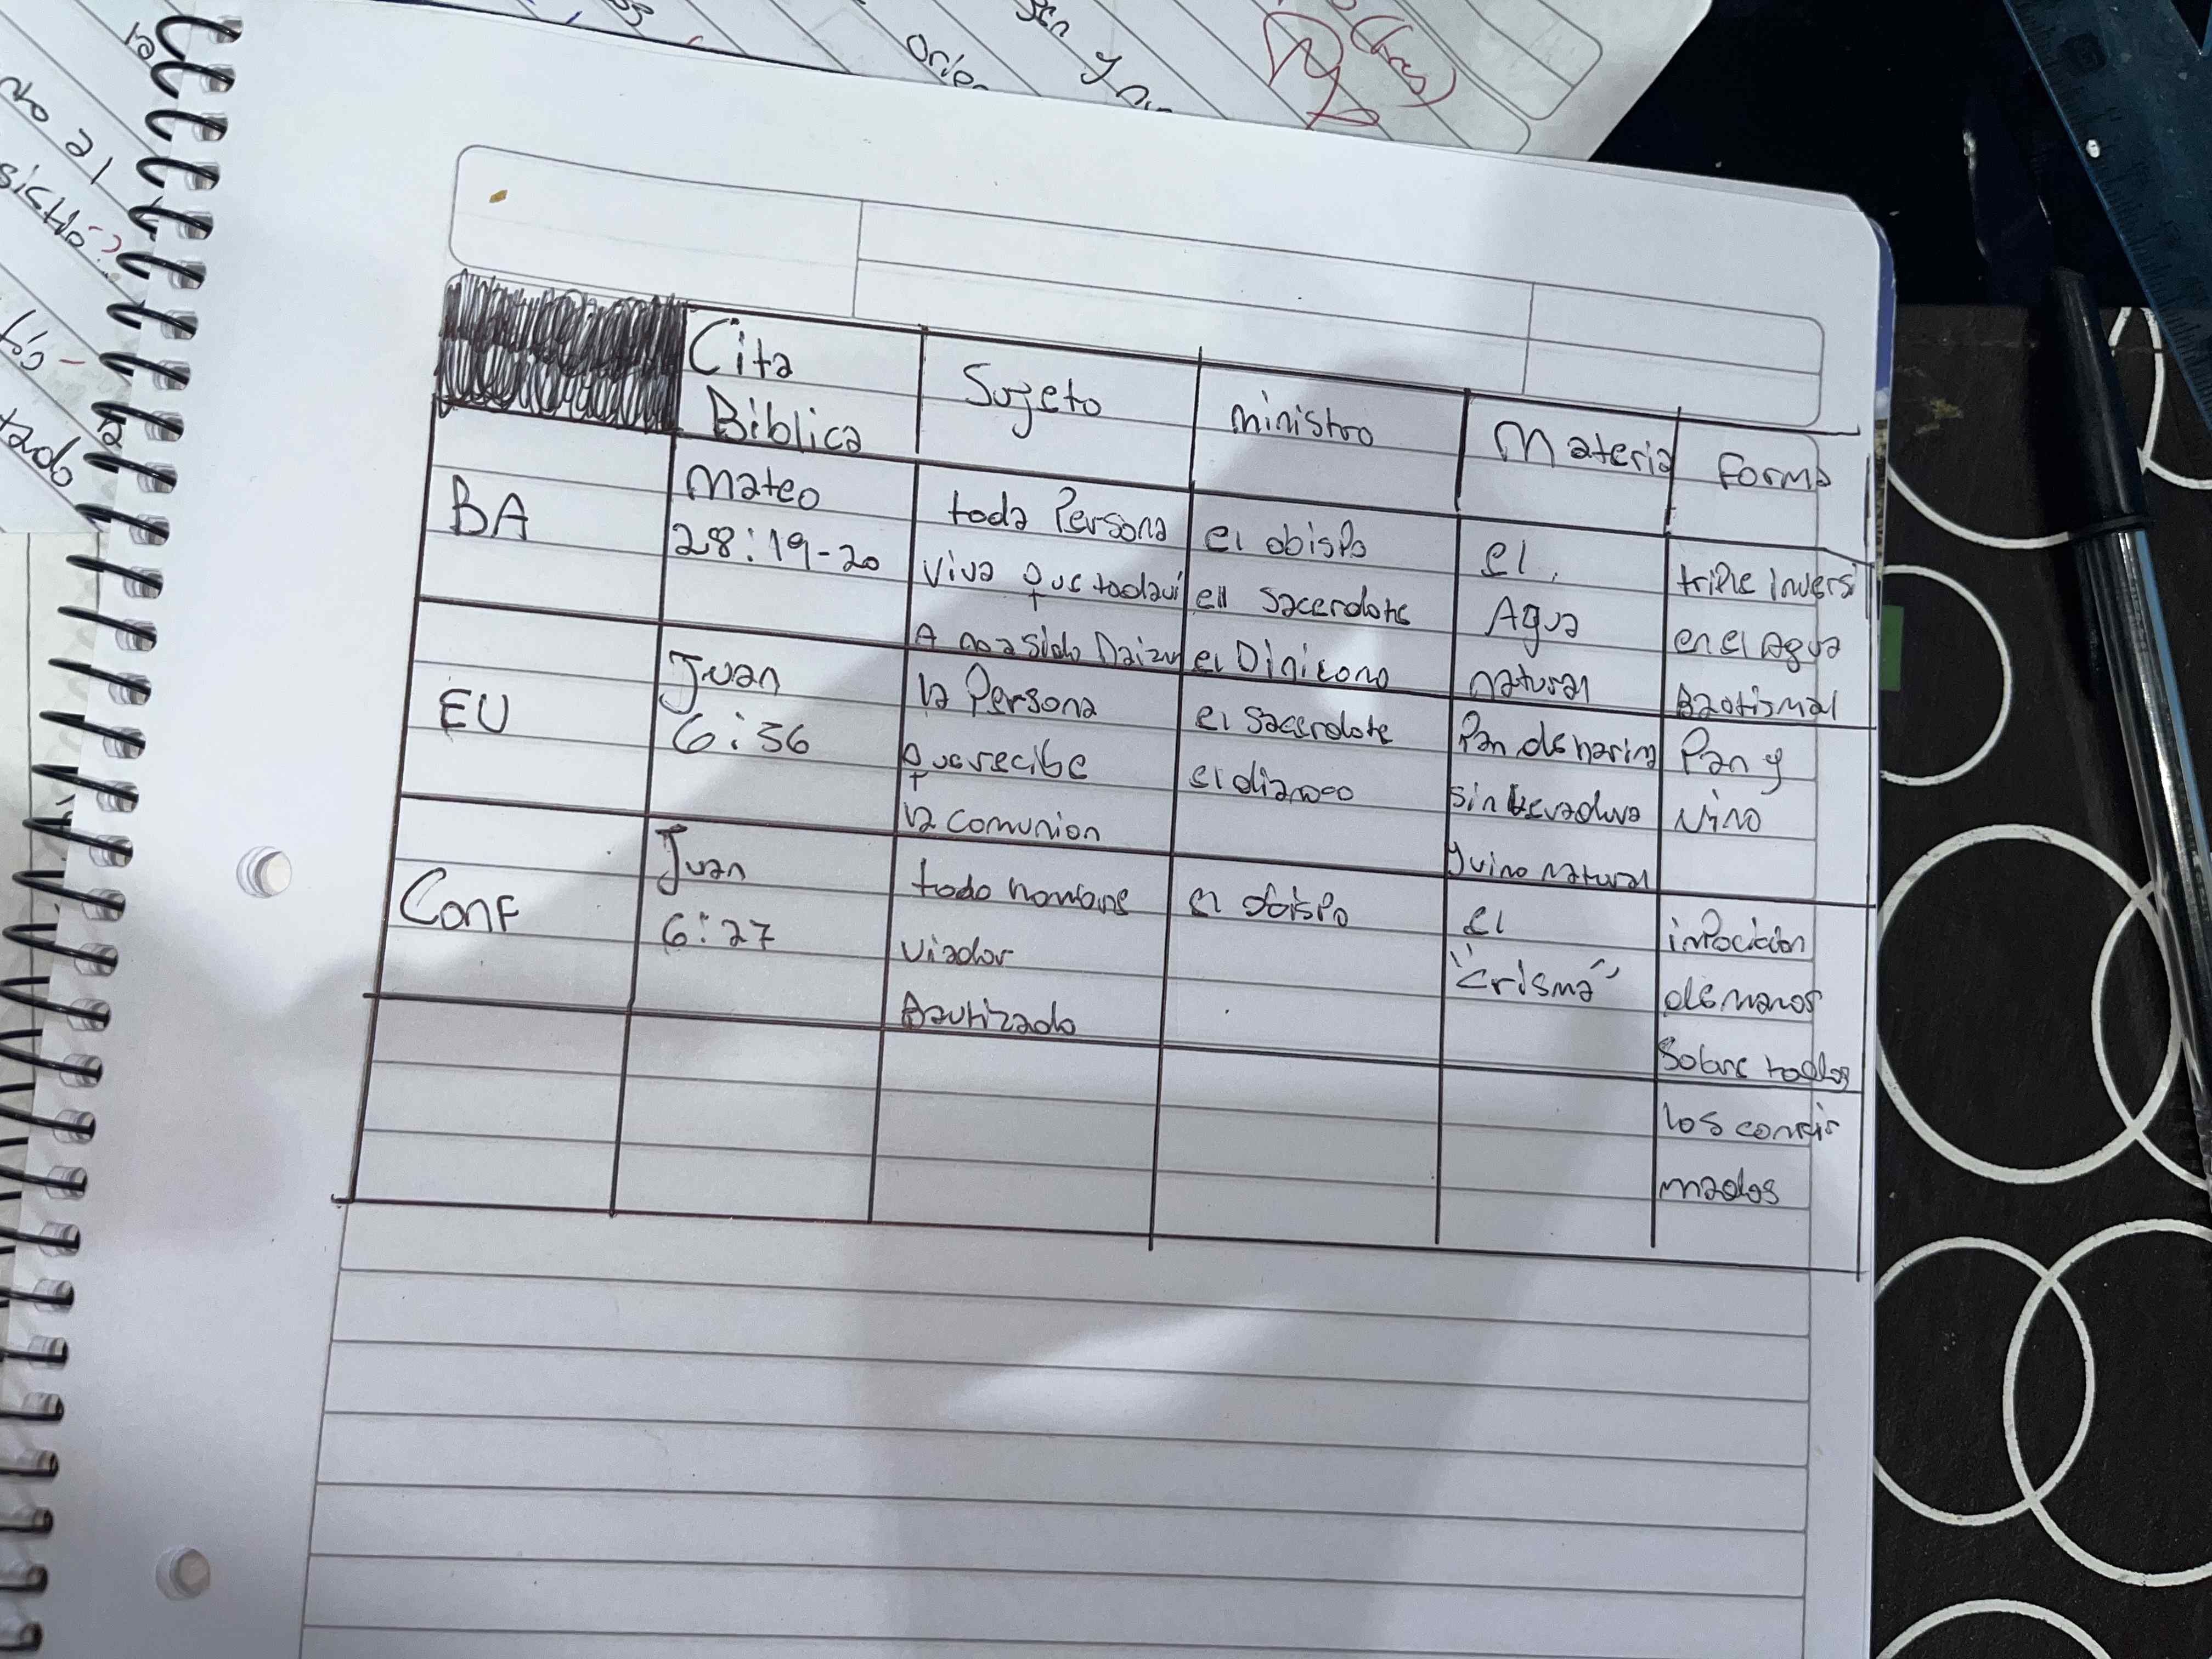 Cita
Biblica
Sujeto
ministro
Materia
Forma
BA
Mateo
28:19-20
toda Persona
viva que todaví
A no a sido
el obispo
el sacerdote
el
el
Agua
natural
triple invers
en el Agua
Baotismal
EU
Juan
6:56
la Persona
que recibe
la comunion
el sacerdote
el diacono
Pan de harina
sin levadura
y vino natural
Pan y
vino
Conf
Juan
6:27
todo hombre
viador
Bautizado
el obispo
el
"crisma"
inPocicion
de manos
Sobre todos
los confir
mados
orie
sen y
tado